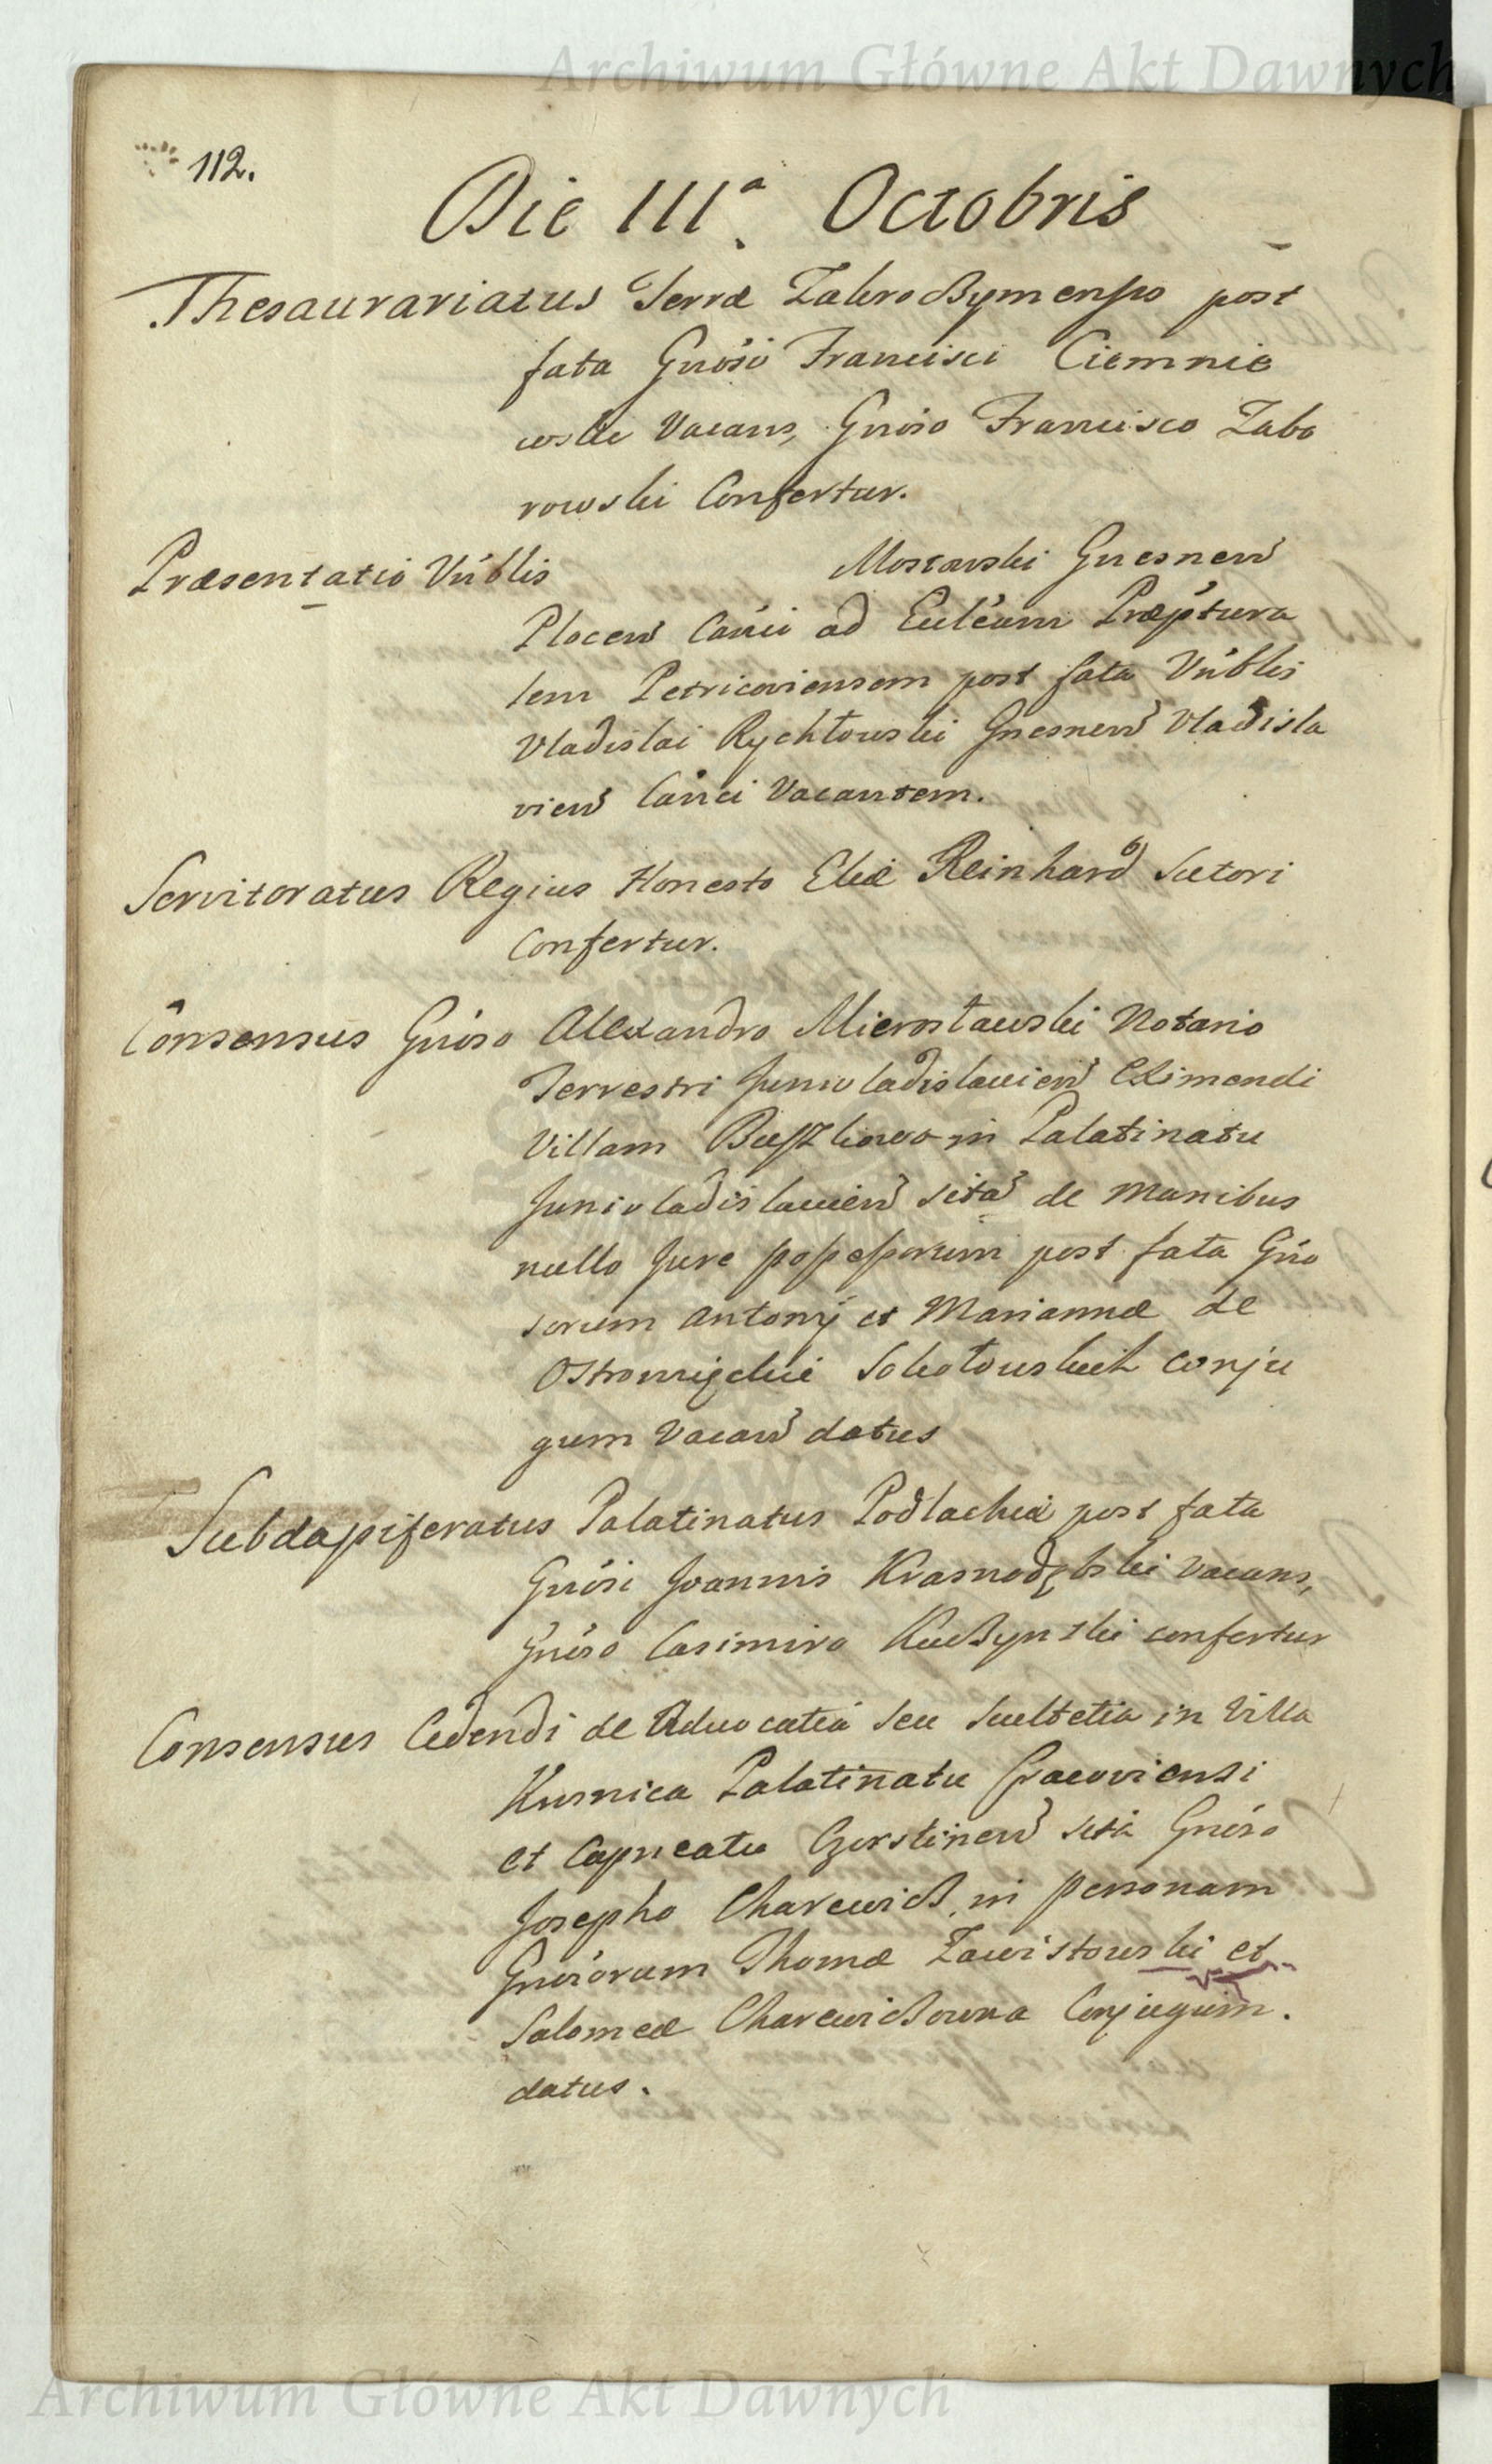 Archiwum Główne Akt Dawnych
112.
Die IIIª Octobris
Thesaurariatus Terræ Zakroczymensis post
fata Gnosi Francisci Ciemnie
wski Vacans, Gnoso Francisco Zabo
rowski Confertur.
Præsentatio Vnblis Moszewski Gnesnen
Plocen Canci ad Eccleam Præptura
lem Petricoviensem post fata Vnblis
Vladislai Rychłowski Gnesnen Vladisla
vien Canci Vacantem.
Servitoratus Regius Honesto Eliæ Reinhard Sutori
Confertur.
Consensus Gnoso Alexandro Mierosławski Notario
Terrestri Junivladislavien Eximendi
Villam Buszkowo in Palatinatu
Junivladislavien sita de Manibus
nullo Jure possessorum post fata Gno
sorum Antonij et Mariannæ de
Ostromięckie Sokołowskich conju
gum Vacan datus
Subdapiferatus Palatinatus Podlachiæ post fata
Gnosi Joannis Krasnodębski Vacans,
Gnoso Casimiro Kuczynski confertur
Consensus Cedendi de Advocatia seu Scultetia in Villa
Kusnica Palatinatu Cracoviensi
et Capneatu Czorstinen sita Gnoso
Josepho Charewicz, in personam
Gnosorum Thomæ Zawistowski et
Salomeæ Charewiczowna Conjugum.
datus.
Archiwum Główne Akt Dawnych